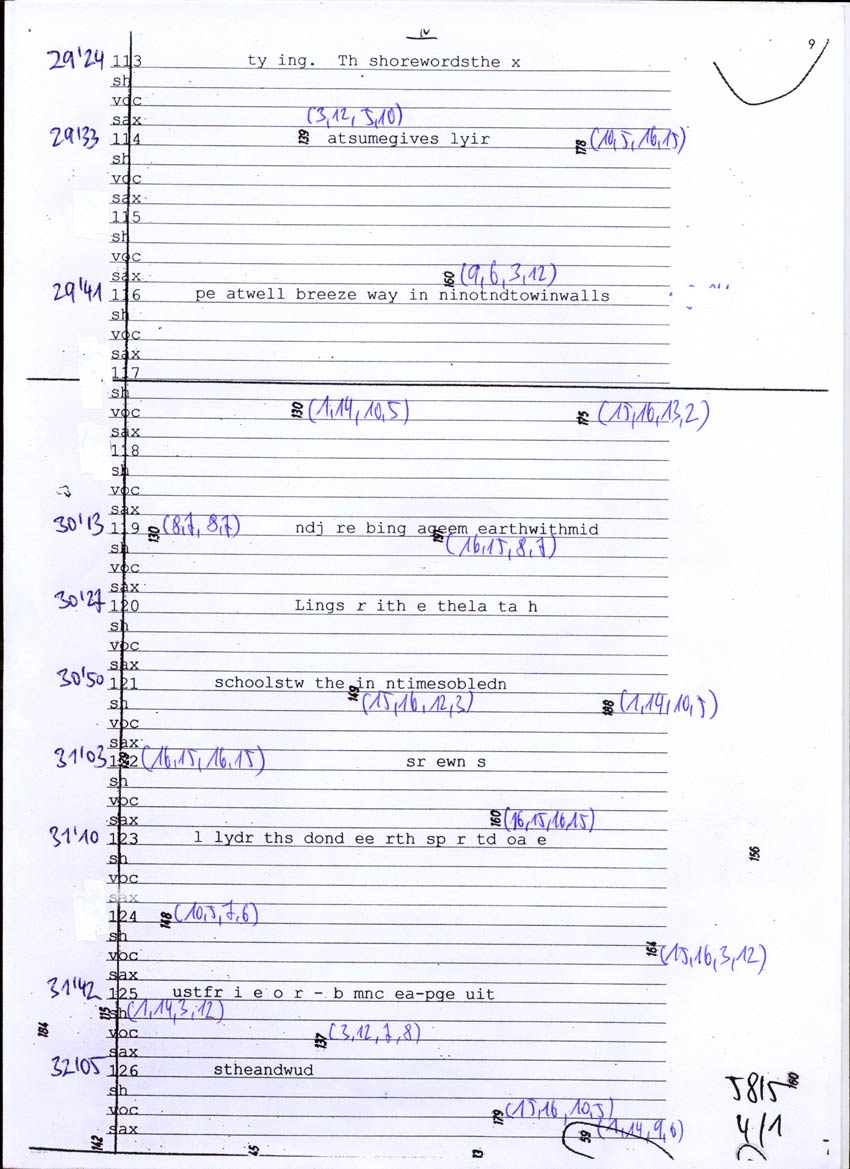 IV
9
29'24 113 ty ing. Th shorewordsthe x
sh
voc
sax (3,12,5,10)
29'33 114 139 atsumegives lyir 178 (10,5,16,15)
sh
voc
sax
115
sh
voc
sax 160 (9,6,3,12)
29'41 116 pe atwell breeze way in ninotndtowinwalls
sh
voc
sax
117
sh
voc 130 (1,14,10,5) 175 (15,16,13,2)
sax
118
sh
voc
sax
30'13 119 130 (8,7,8,7) ndj re bing aqeem earthwithmid
sh 191 (16,15,8,7)
voc
sax
30'27 120 Lings r ith e thela ta h
sh
voc
sax
30'50 121 schoolstw the in ntimesobledn
sh 149 (15,16,12,3) 188 (1,14,10,5)
voc
sax
31'03 122 (16,15,16,15) sr ewn s
sh
voc
sax 160 (16,15,16,15)
31'10 123 l lydr ths dond ee rth sp r td oa e
sh 156
voc
sax
124 148 (10,5,7,6)
sh
voc 164 (15,16,3,12)
sax
31'42 125 ustfr i e o r - b mnc ea-pge uit
sh 115 (1,14,3,12)
184 voc 137 (3,12,7,8)
sax
32'05 126 stheandwud
sh 5815 160
voc 179 (15,16,10,5) 4/1
sax 59 (1,14,9,6)
142 45 13